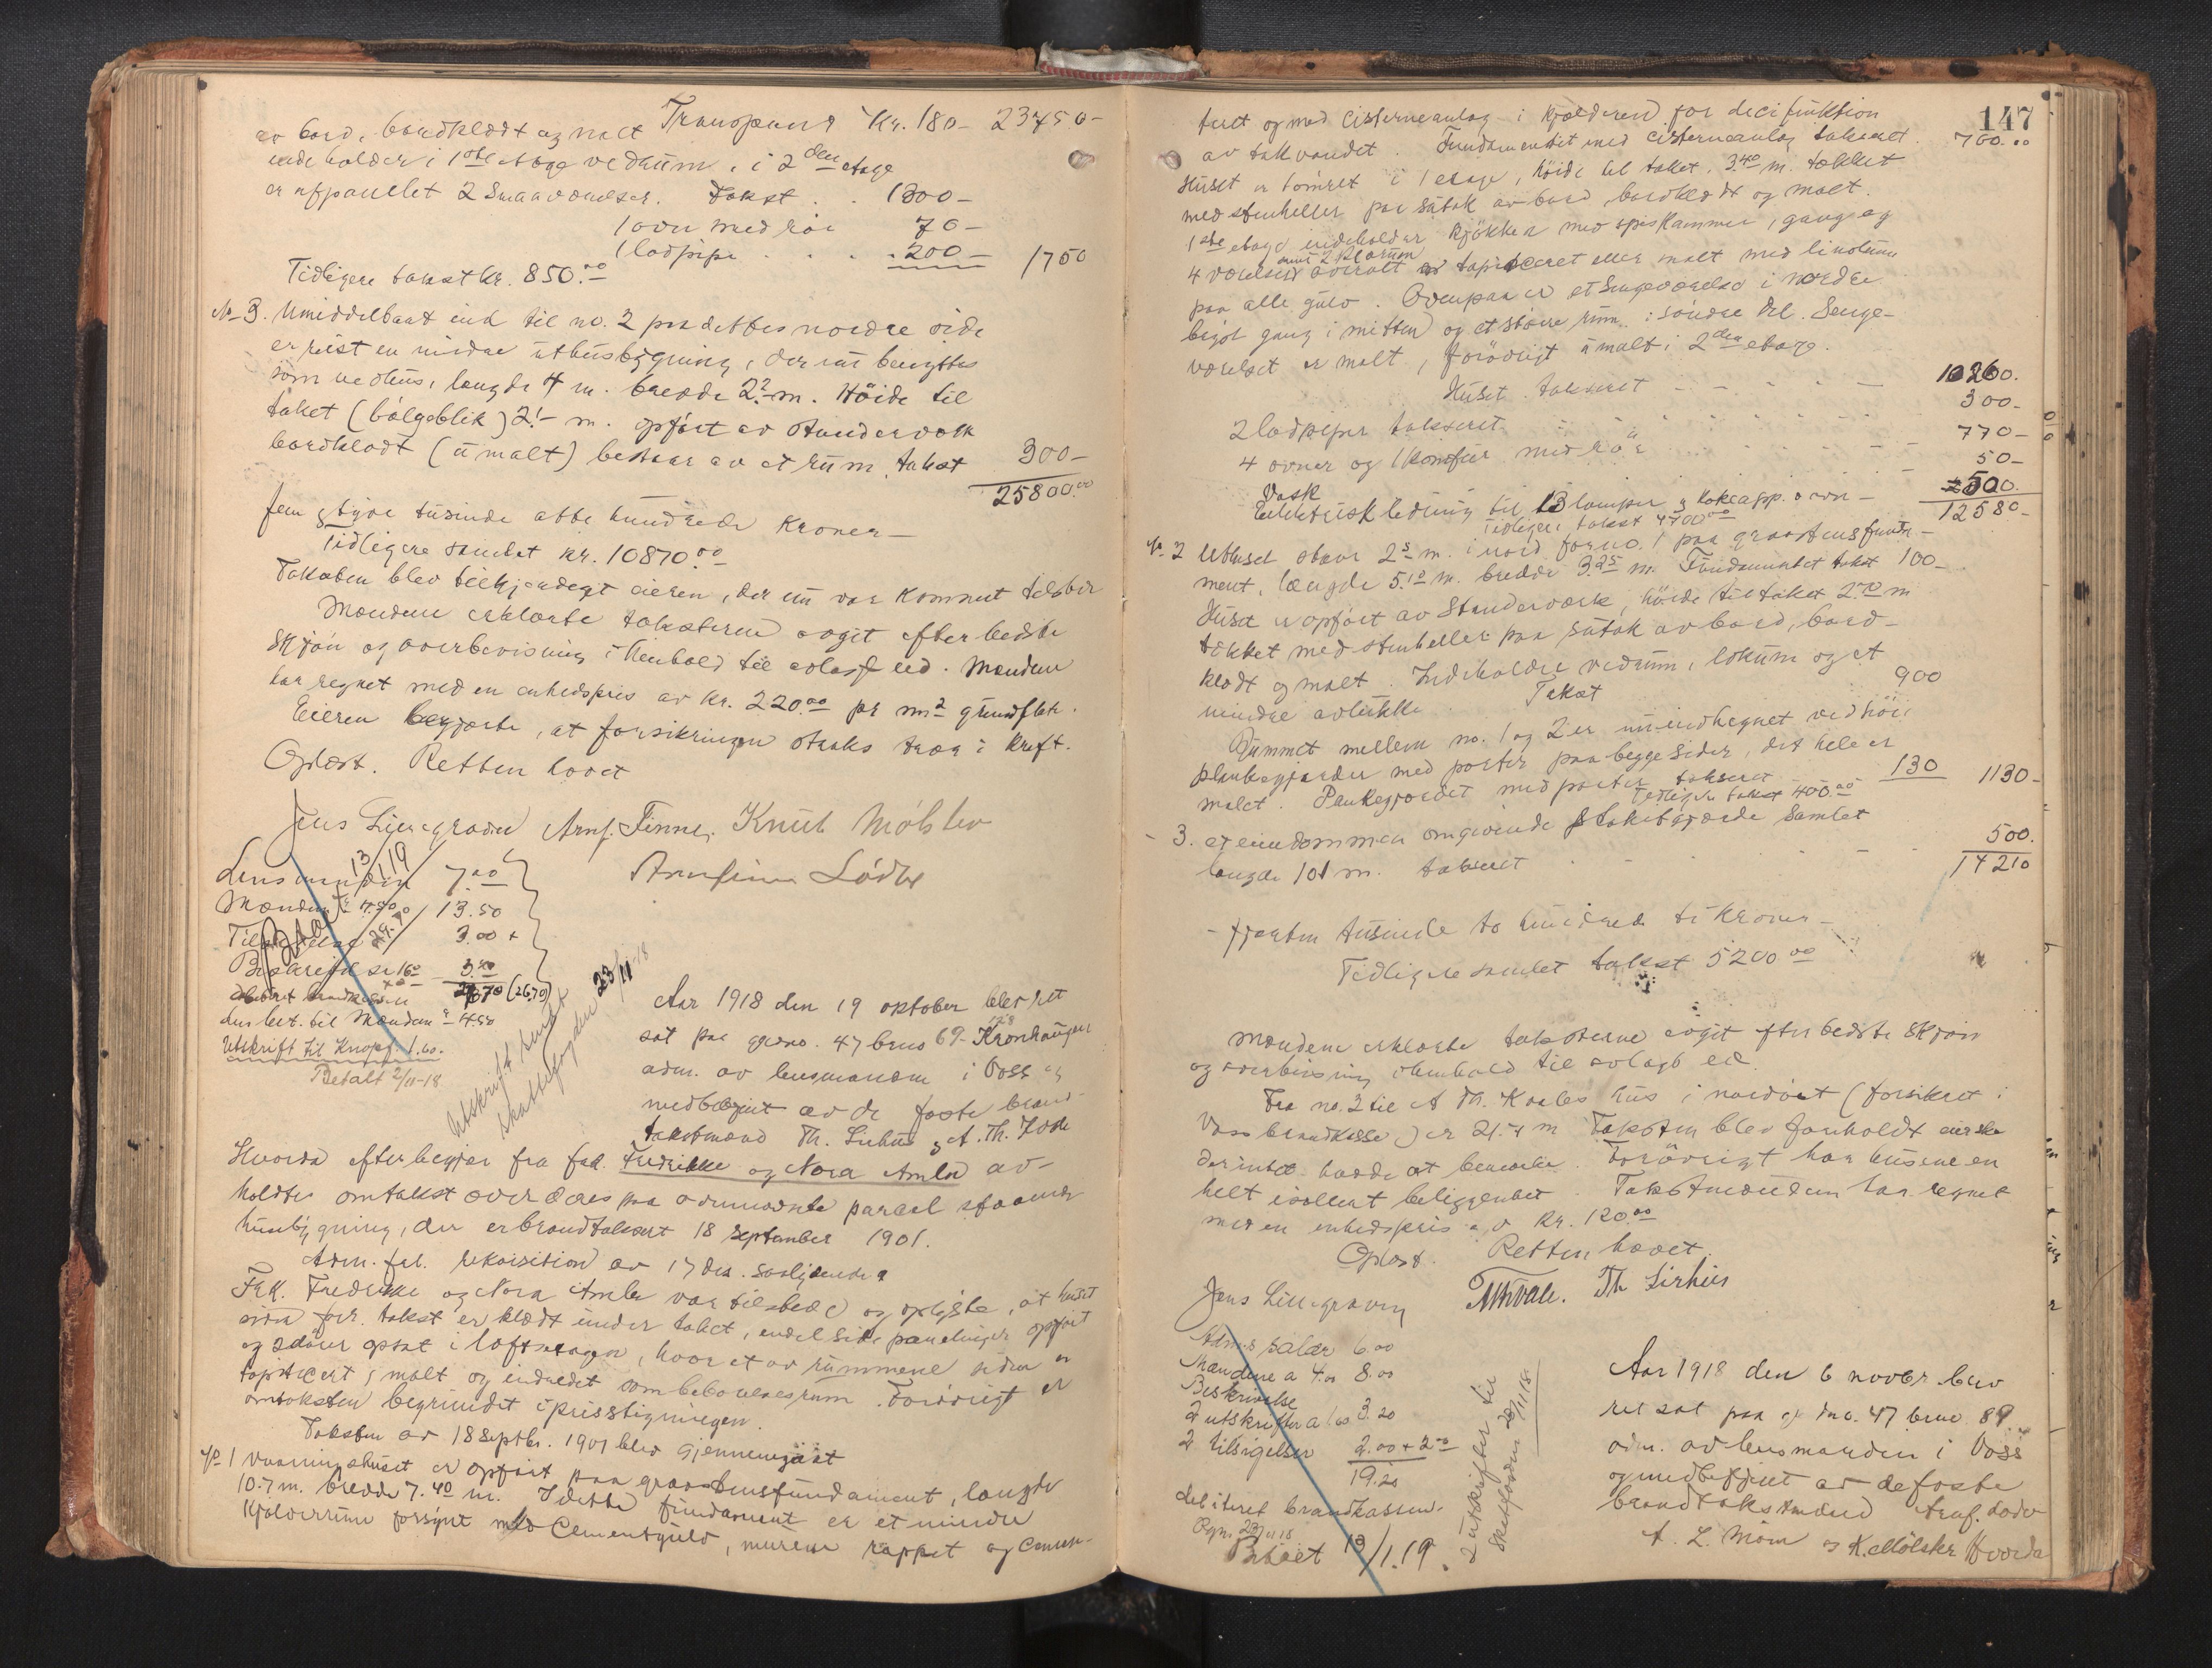 Transport Kr. 180- 23750-
av bord, bordklædt og malt
indeholder i 1ste etage vedrum, i 2den etage
er afpanelet 2 Smaaværelser. Takst . . 1300-
1 ovn med rör 70-
1 ladpipe . . . . 200- 1750
Tidligere takst kr. 850.00
No 3. Umiddelbart ind til no. 2 paa dettes nordre side
er reist en mindre uthusbygning, der nu benyttes
som vedhus, længde 4 m. bredde 2.2 m. Höide til
taket (bölgeblik) 2.- m. opfört av Standerværk
bordklædt (umalt) bestaar av et rum takst 300-
25800.00
fem og tyve tusinde otte hundrede Kroner-
Tidligere samlet kr. 10870.00
Taksten blev tilkjendegit eieren, der nu var kommet tilstede
Mændene erklærte taksterne avgit efter bedste
skjön og overbevisning i henhold til avlagt ed. Mændene
har regnet med en enhedspris av kr. 220.00 pr m2 grundflate.
Eieren begjærte, at forsikringen straks træer i kraft.
Oplæst. Retten hævet
Jens Lillegraven Arnf. Finne. Knut Mölster
Arnfinn Lödve
Lensmanden 7.00
Mændene 4.50 13.50
Tilsigelse 3.00 +
Beskrivelse 1.60 3.20
Betalt 13/1 19
debitert brandkassen 26.70 (26.70)
Lens bet. til Mændene 4.50
Utskrift til Knopf. 1.60.
Betalt 2/11-18
Utskrift sendt
skattefogden 23/11-18
Aar 1918 den 19 oktober blev ret
sat paa gaardno. 47 brno 69 Kronhaugen
adm. av lensmanden i Voss og
medbetjent av de faste brand-
takstmænd Th. Lirhus og A. Th. Hvale
Hvorda efter begjær fra frk. Fredrikke og Nora Amln av-
holdtes omtakst over deres paa ovennævnte parcel staaende
husbygning, der er brandtaksert 18 september 1901.
Adm. frl. rekvisition av 17 ds. saalydende
Frk. Fredrikke og Nora Amln var tilstede og oplyste, at huset
siden forr. takst er klædt under taket, endel side panelinger opfört
og 2 dörer opsat i loftsetagen, hvor et av rummene siden er
tapitcert, malt og indredet som beboelsesrum. Forövrigt er
omtaksten begrundet i prisstigningen.
Taksten av 18 septbr. 1901 blev gjennemgaat
No 1 Vaaningshuset er opfört paa graastensfundament, længde
10.7 m. bredde 7.40 m. I dette fundament er et mindre
Kjelderrum forsynt med Cementgulv, murene rappet og Cemen-
147
teret og med Cisterneanlæg i Kjælderen for decifinktion
av takvandet. Fundamentet med cisterneanlæg takseret. 700.00
Huset er tömret i 1 etage, höide til taket. 3.40 m. tækket
med stenheller paa sutak av bord, bordklædt og malt.
1ste etage indeholder kjökken med spiskammer, gang og
4 værelser samt 2 klærum overalt er tapiceret eller malt med linoleum
paa alle gulv. Ovenpaa er et Sengeværelse i nordre
bisl. gang i mitten og et större rum i söndre del. Senge-
værelset er malt, forövrigt umalt i 2den etage.
Huset takseret - - - - - 10260.
2 ladpiper takseret. 300-
4 ovner og 1 komfur med rör 770-
Vask 50-
Elektrisk ledning til 13 lamper og kokeapp. o ovn - 500.
Tidligere takst 4700.00 12580-
No. 2 Uthuset staar 2.5 m. i nord for no. 1 paa graastensfunda-
ment, længde 5.10 m. bredde 3.25 m. Fundamentet takst 100-
Huset er opfört av Standerværk, höide til taket 2.70 m
tækket med stenheller paa sutak av bord, bord-
klædt og malt. Indeholder vedrum, lokum og et
mindre avlukke. Takst 900
Rummet mellem no. 1 og 2 er nu indhegnet ved höie
plankegjærder med porter paa begge sider, det hele er
malet. Plankegjærdet med porter takseret 130 1130-
Tidligere takst 400.00
- 3. et eiendommen omgivende Stakitgjærde samlet
længde 101 m. takseret 500.
14210
- fjorten tusinde to hundrede ti Kroner -
Tidligere samlet takst 5200.00
Mændene erklærte taksterne avgit efter bedste skjön
og overbevisning i henhold til avlagt ed.
Fra no. 2 til A Th. Kaales hus i nordost (forsikret i
Voss brandkasse) er 21.4 m. Taksten blev forholdt eierne
der intet havde at bemærke. Forövrigt har husene en
helt isolleret beliggenhet. Takstmændene har regnet
med en enhedspris av kr. 120.00
Oplæst. Retten hævet.
Jens Lillegraven AThvale. Th Lirhus
Adm.s salær 6.00
Mændene a 4.00 8.00
Beskrivelse
2 utskrifter a 1.60 3.20
2 tilsigelser 2.00 + 2.00
19.20
debiteret brandkassen.
Betalt 13/1.19.
2 utskrifter til
Skatfogden 23/11 18
Aar 1918 den 6 novbr blev
ret sat paa gr no. 47 brno 89
adm. av lensmanden i Voss
og medbetjent av de faste
brandtakstmænd Arnf. Lödve
A. L. Möm og K. Mölster Hvorda